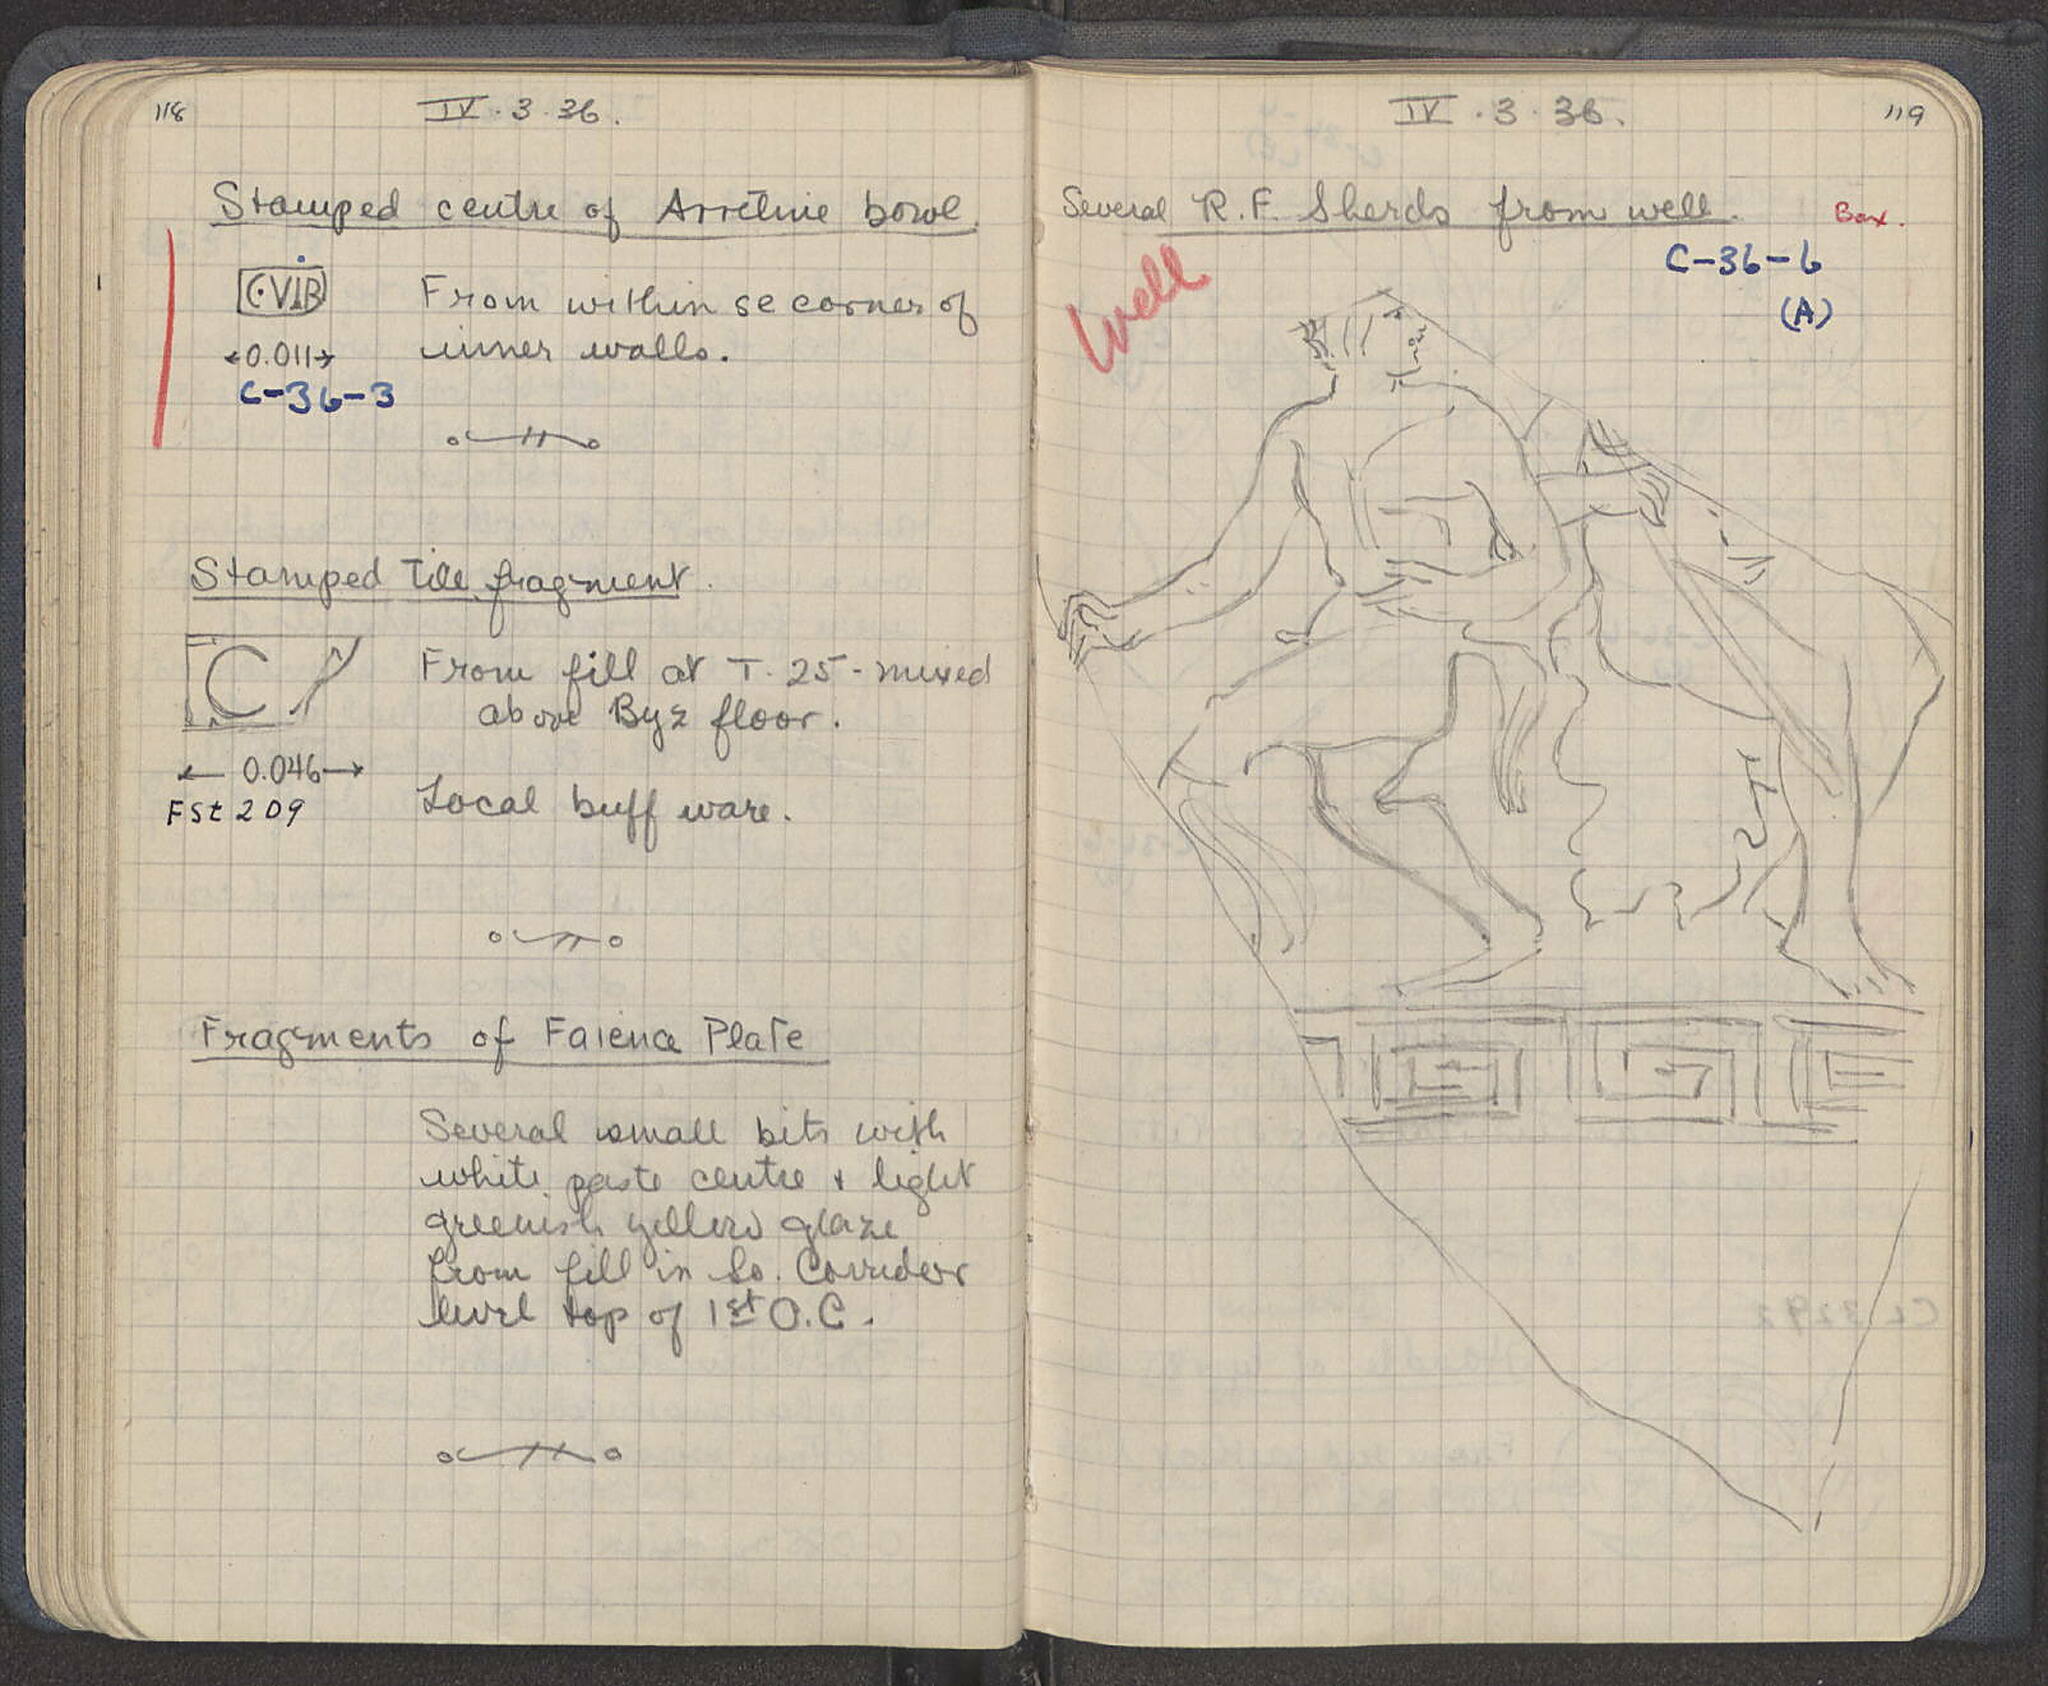 118
IV.3.36.
Stamped centre of Arretine bowl.
C·VIB
From within se corner of
inner walls.
←0.011→
C-36-3
Stamped Tile fragment.
C
From fill at T. 25 - mixed
above Byz floor.
← 0.046→
FSt 209
Local buff ware.
Fragments of Faience Plate
Several small bits with
white paste centre + light
greenish yellow glaze
from fill in So. Corridor
level top of 1st O.C.
IV.3.36.
119
Several R.F. Sherds from well.
Box.
Well
C-36-6
(A)